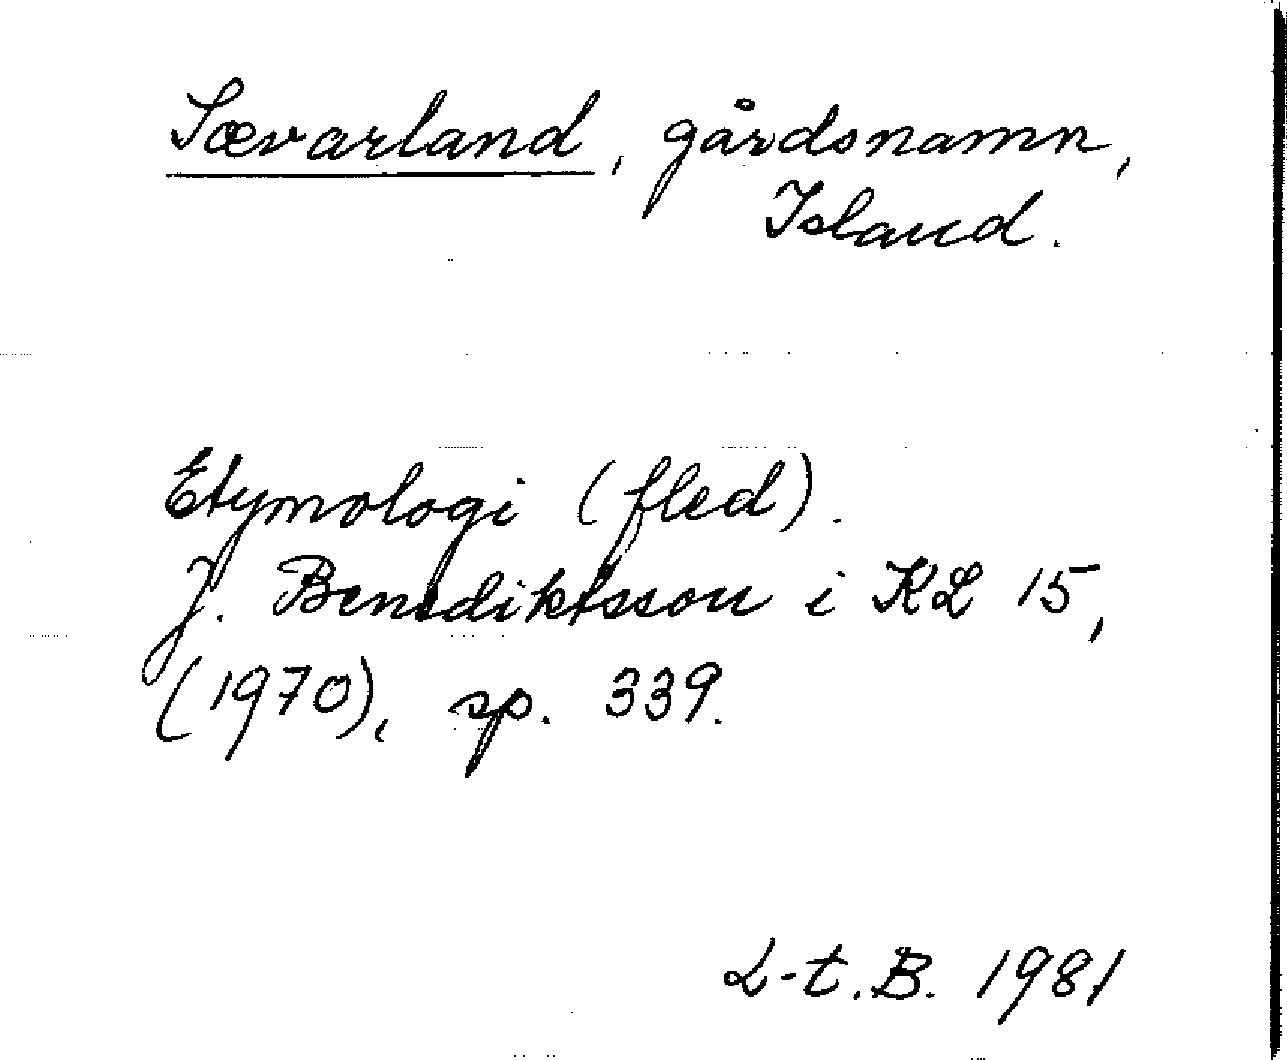 Sævarland, gårdsnamn,
Island.
Etymologi (fled).
J. Benediktsson i KL 15,
(1970), sp. 339.
L-t.B. 1981